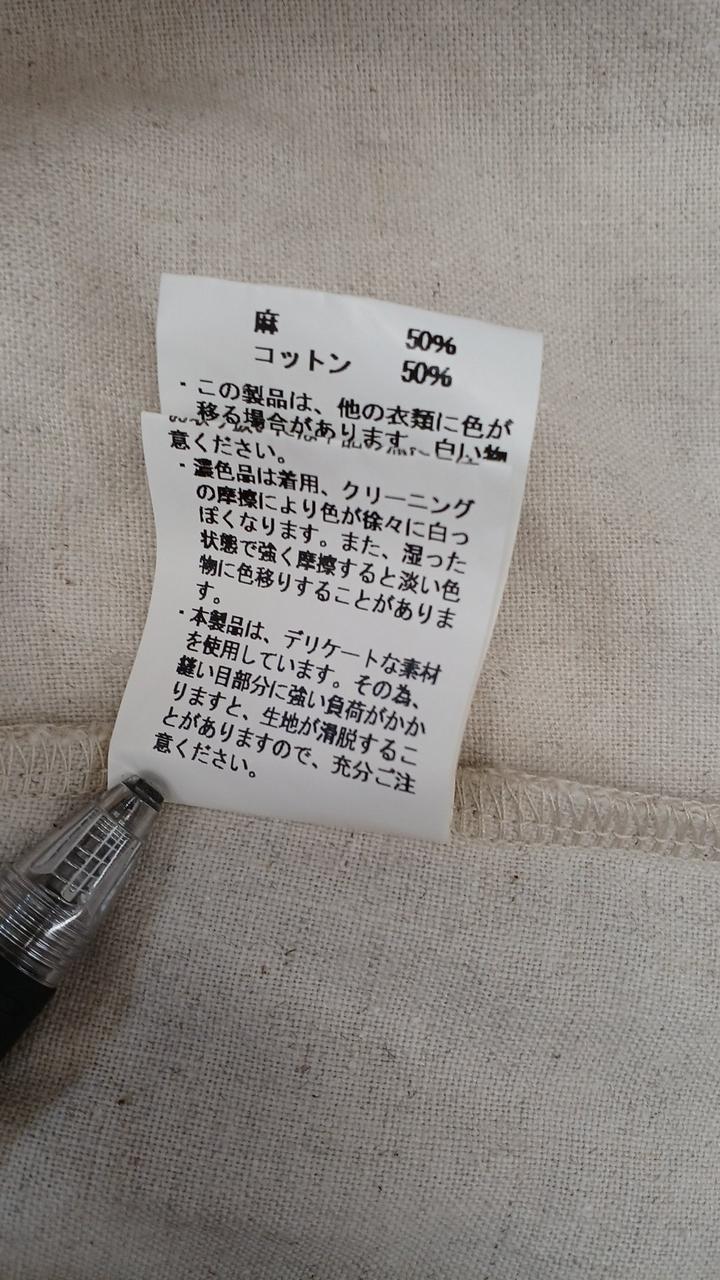 麻 50%
コットン 50%
・この製品は、他の衣類に色が
移る場合があります。白い物
意ください。
・濃色品は着用、クリーニング
の摩擦により色が徐々に白っ
ぽくなります。また、湿った
状態で強く摩擦すると淡い色
物に色移りすることがありま
す。
・本製品は、デリケートな素材
を使用しています。その為、
縫い目部分に強い負荷がかか
りますと、生地が滑脱するこ
とがありますので、充分ご注
意ください。